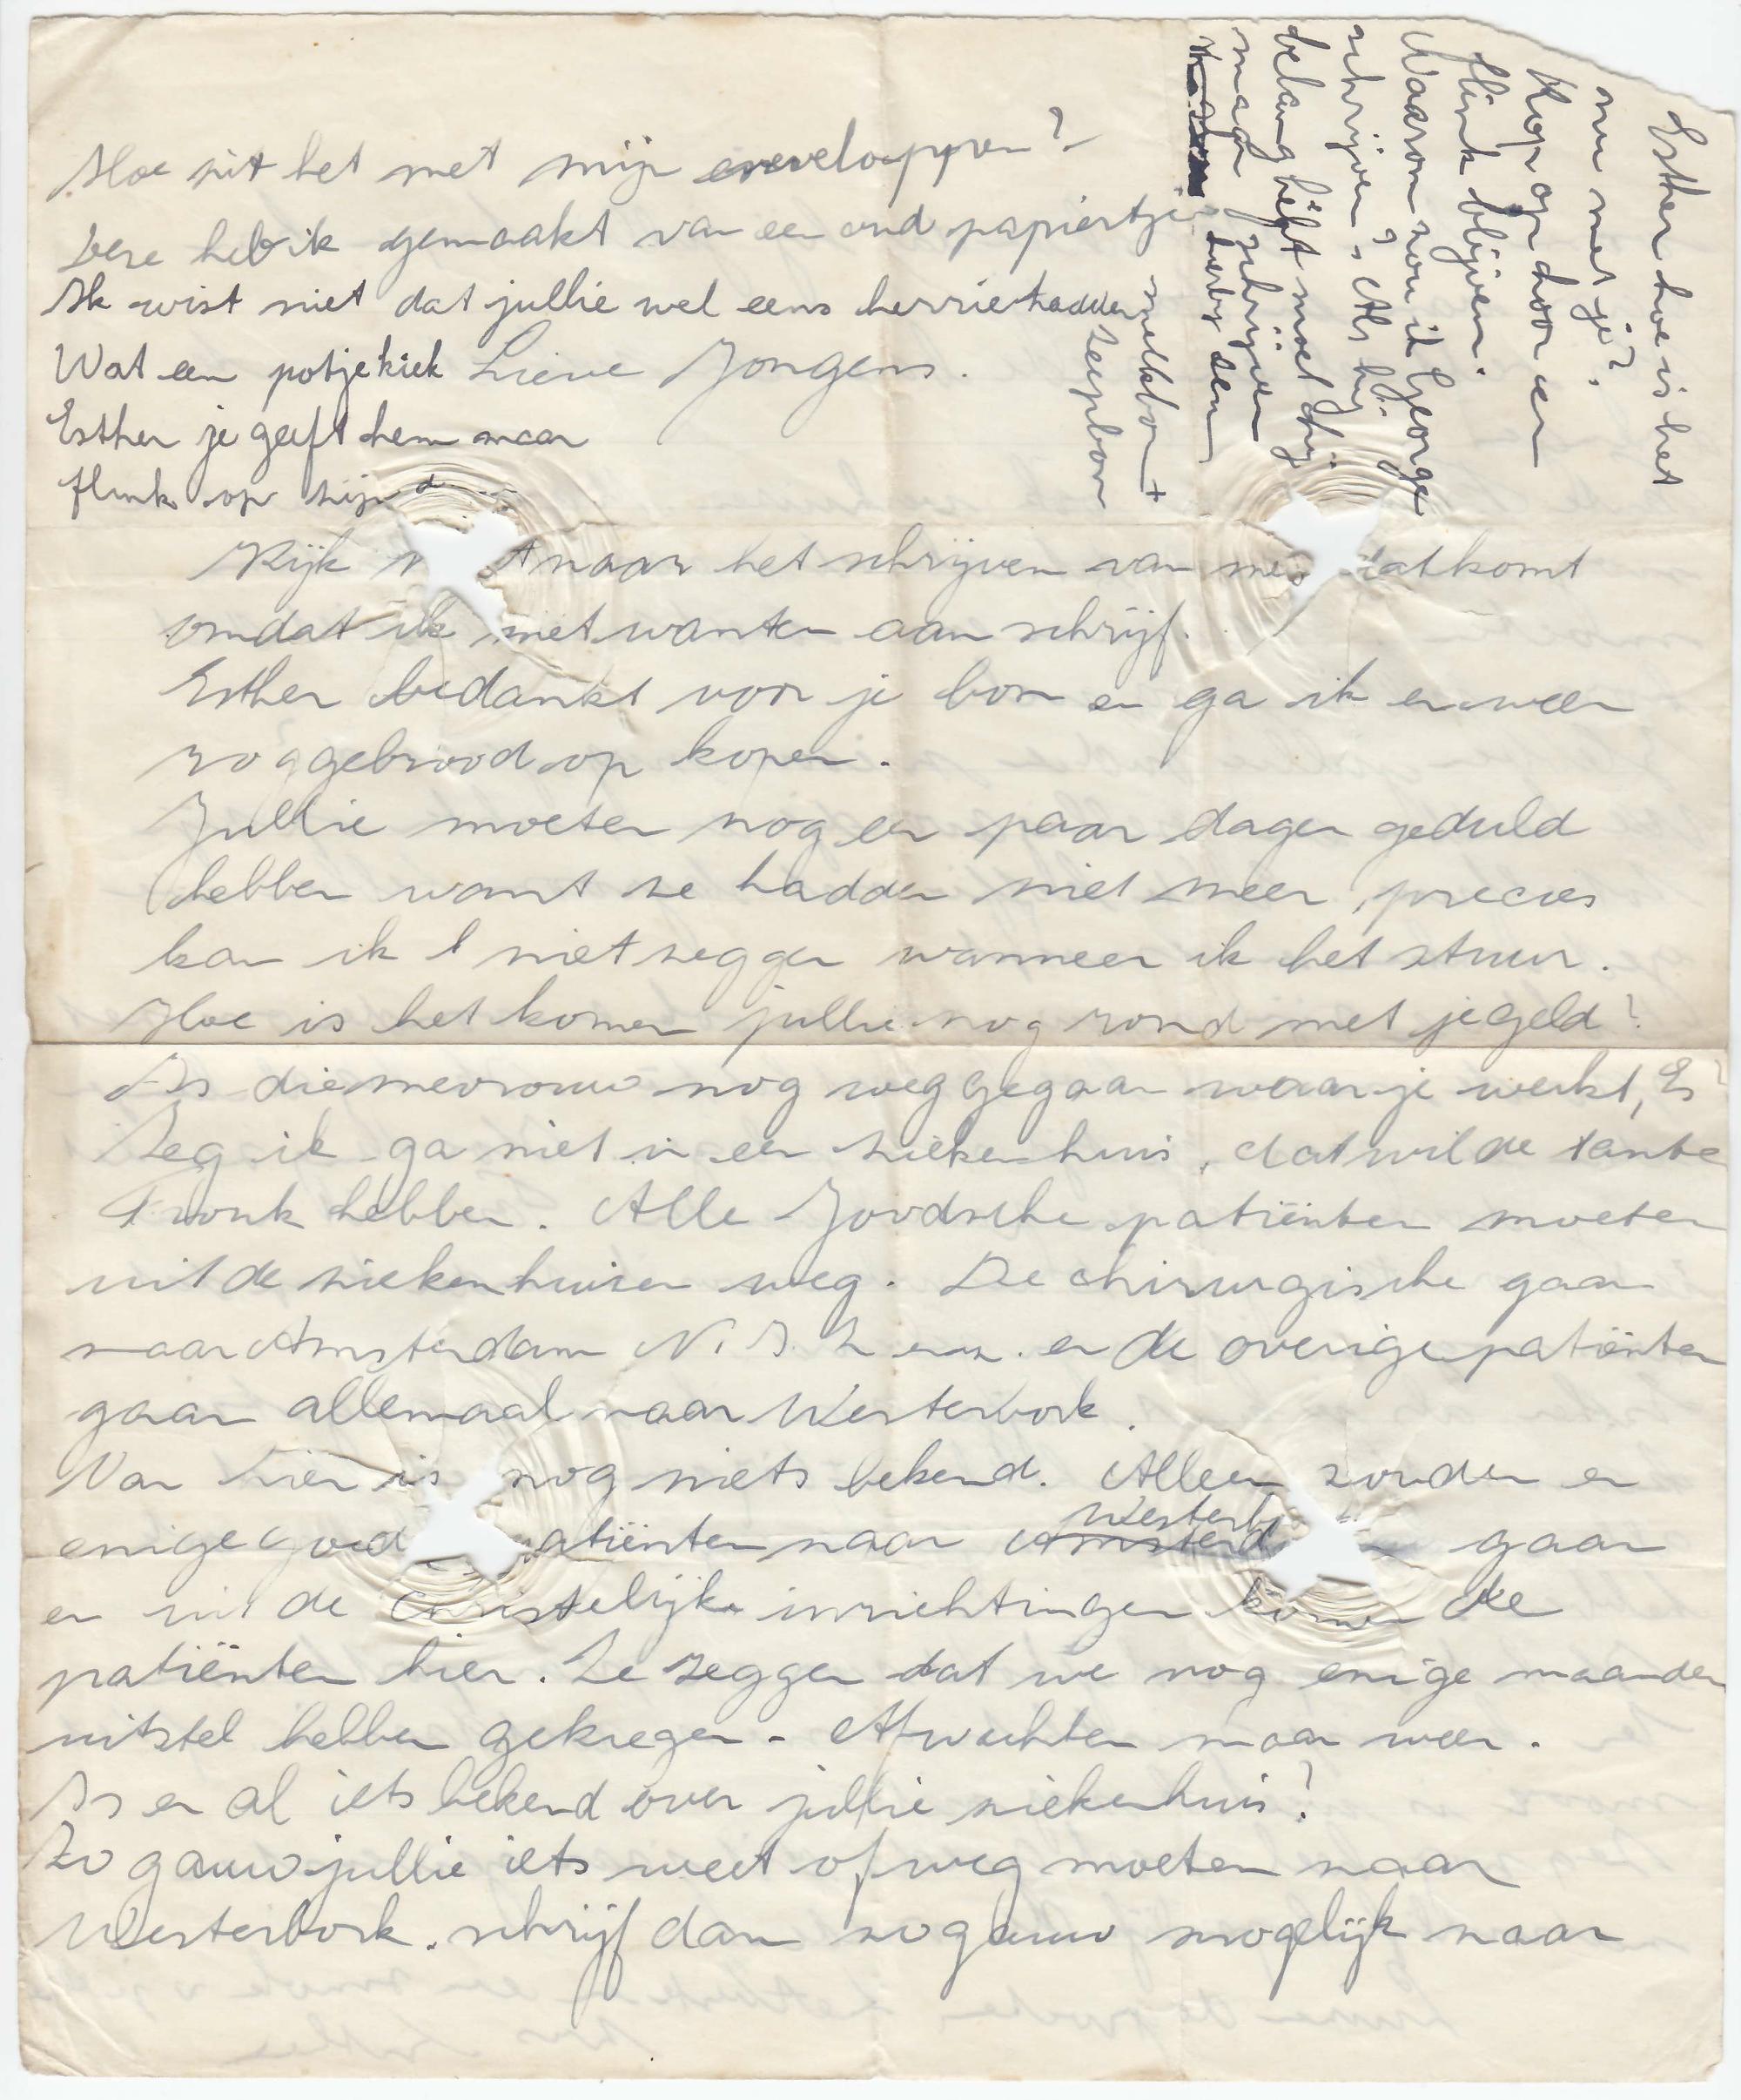 Hoe zit het met mijn enveloppen?
Deze heb ik gemaakt van een oud papiertje
Ik wist niet dat jullie wel eens herrie hadden
Wat een potjekiek Lieve Jongens.
Esther je geeft hem maar
flink op zijn d
Kijk niet naar het schrijven van me dat komt
omdat ik met wanten aan schrijf.
Esther bedankt voor je bon en ga ik er weer
roggebrood op kopen.
Jullie moeten nog een paar dagen geduld
hebben want ze hadden niet meer, precies
kan ik 't niet zeggen wanneer ik het stuur.
Hoe is het komen jullie nog rond met je geld?
Is die mevrouw nog weggegaan waar je werkt, Es?
Zeg ik ga niet in een ziekenhuis, dat wilde tante
hebben. Alle Joodsche patiënten moeten
uit de ziekenhuizen weg. De chirurgische gaan
naar Amsterdam N.I.Z. enz. en de overige patiënten
gaan allemaal naar Westerbork.
Van hier is nog niets bekend. Alleen zouden er
enige goed patiënten naar Amsterd Westerb gaan
en uit de Christelijke inrichtingen komen de
patiënten hier. Ze zeggen dat we nog enige maanden
uitstel hebben gekregen. Afwachten maar weer.
Is er al iets bekend over jullie ziekenhuis?
Zo gauw jullie iets weet of weg moeten naar
Westerbork. schrijf dan zo gauw mogelijk naar
Esther hoe is het
nu met je?
Kop op hoor en
flink blijven.
Waarom zou ik George
schrijven? Als hij
belang heeft moet hij
maar schrijven
hierbij een
melkbon +
zeepbon